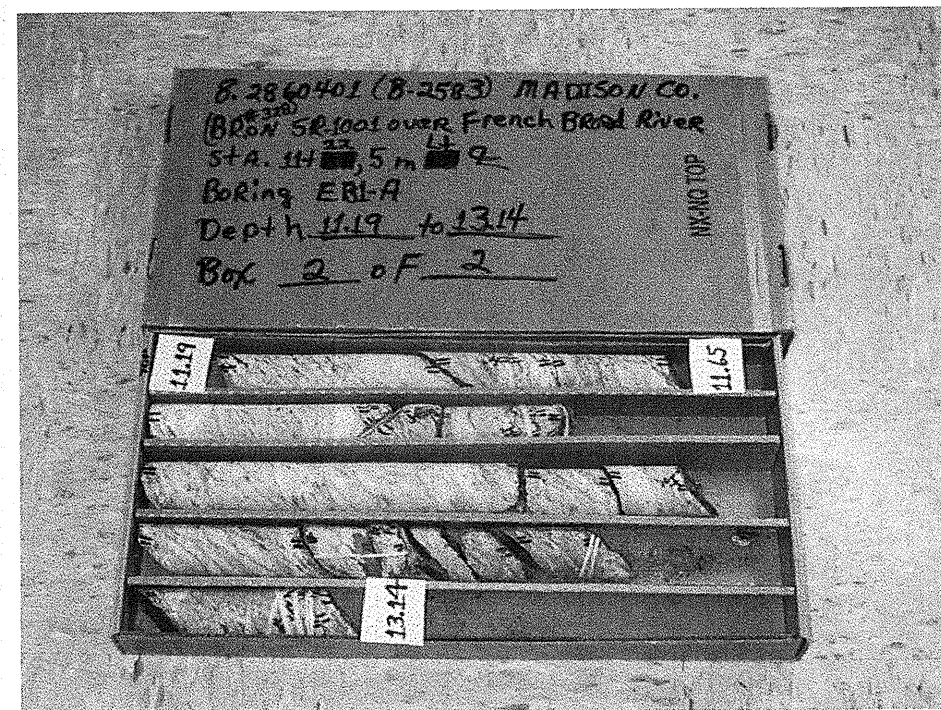 8.2860401 (B-2583) MADISON CO.
(BR ON SR-1001 over French Broad River
Sta. 11+22.5 m Lt
Boring EB1-A
Depth 11.19 to 13.14
Box 2 oF 2
NX-NO TOP
11.19
11.65
13.14